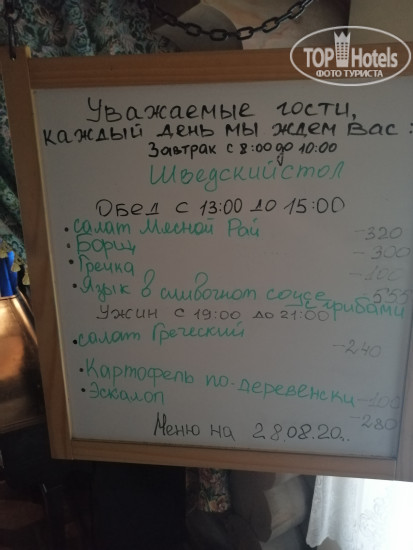 TOP Hotels
ФОТО ТУРИСТА
Уважаемые гости,
каждый день мы ждем Вас :
Завтрак с 8:00 до 10:00
Шведский стол
Обед с 13:00 до 15:00
• салат Мясной Рай -320
• Борщ -300
• Гречка -100
• Язык в сливочном соусе с грибами -555
Ужин с 19:00 до 21:00
• салат Греческий -240
• Картофель по-деревенски -100
• Эскалоп -280
Меню на 28.08.20.